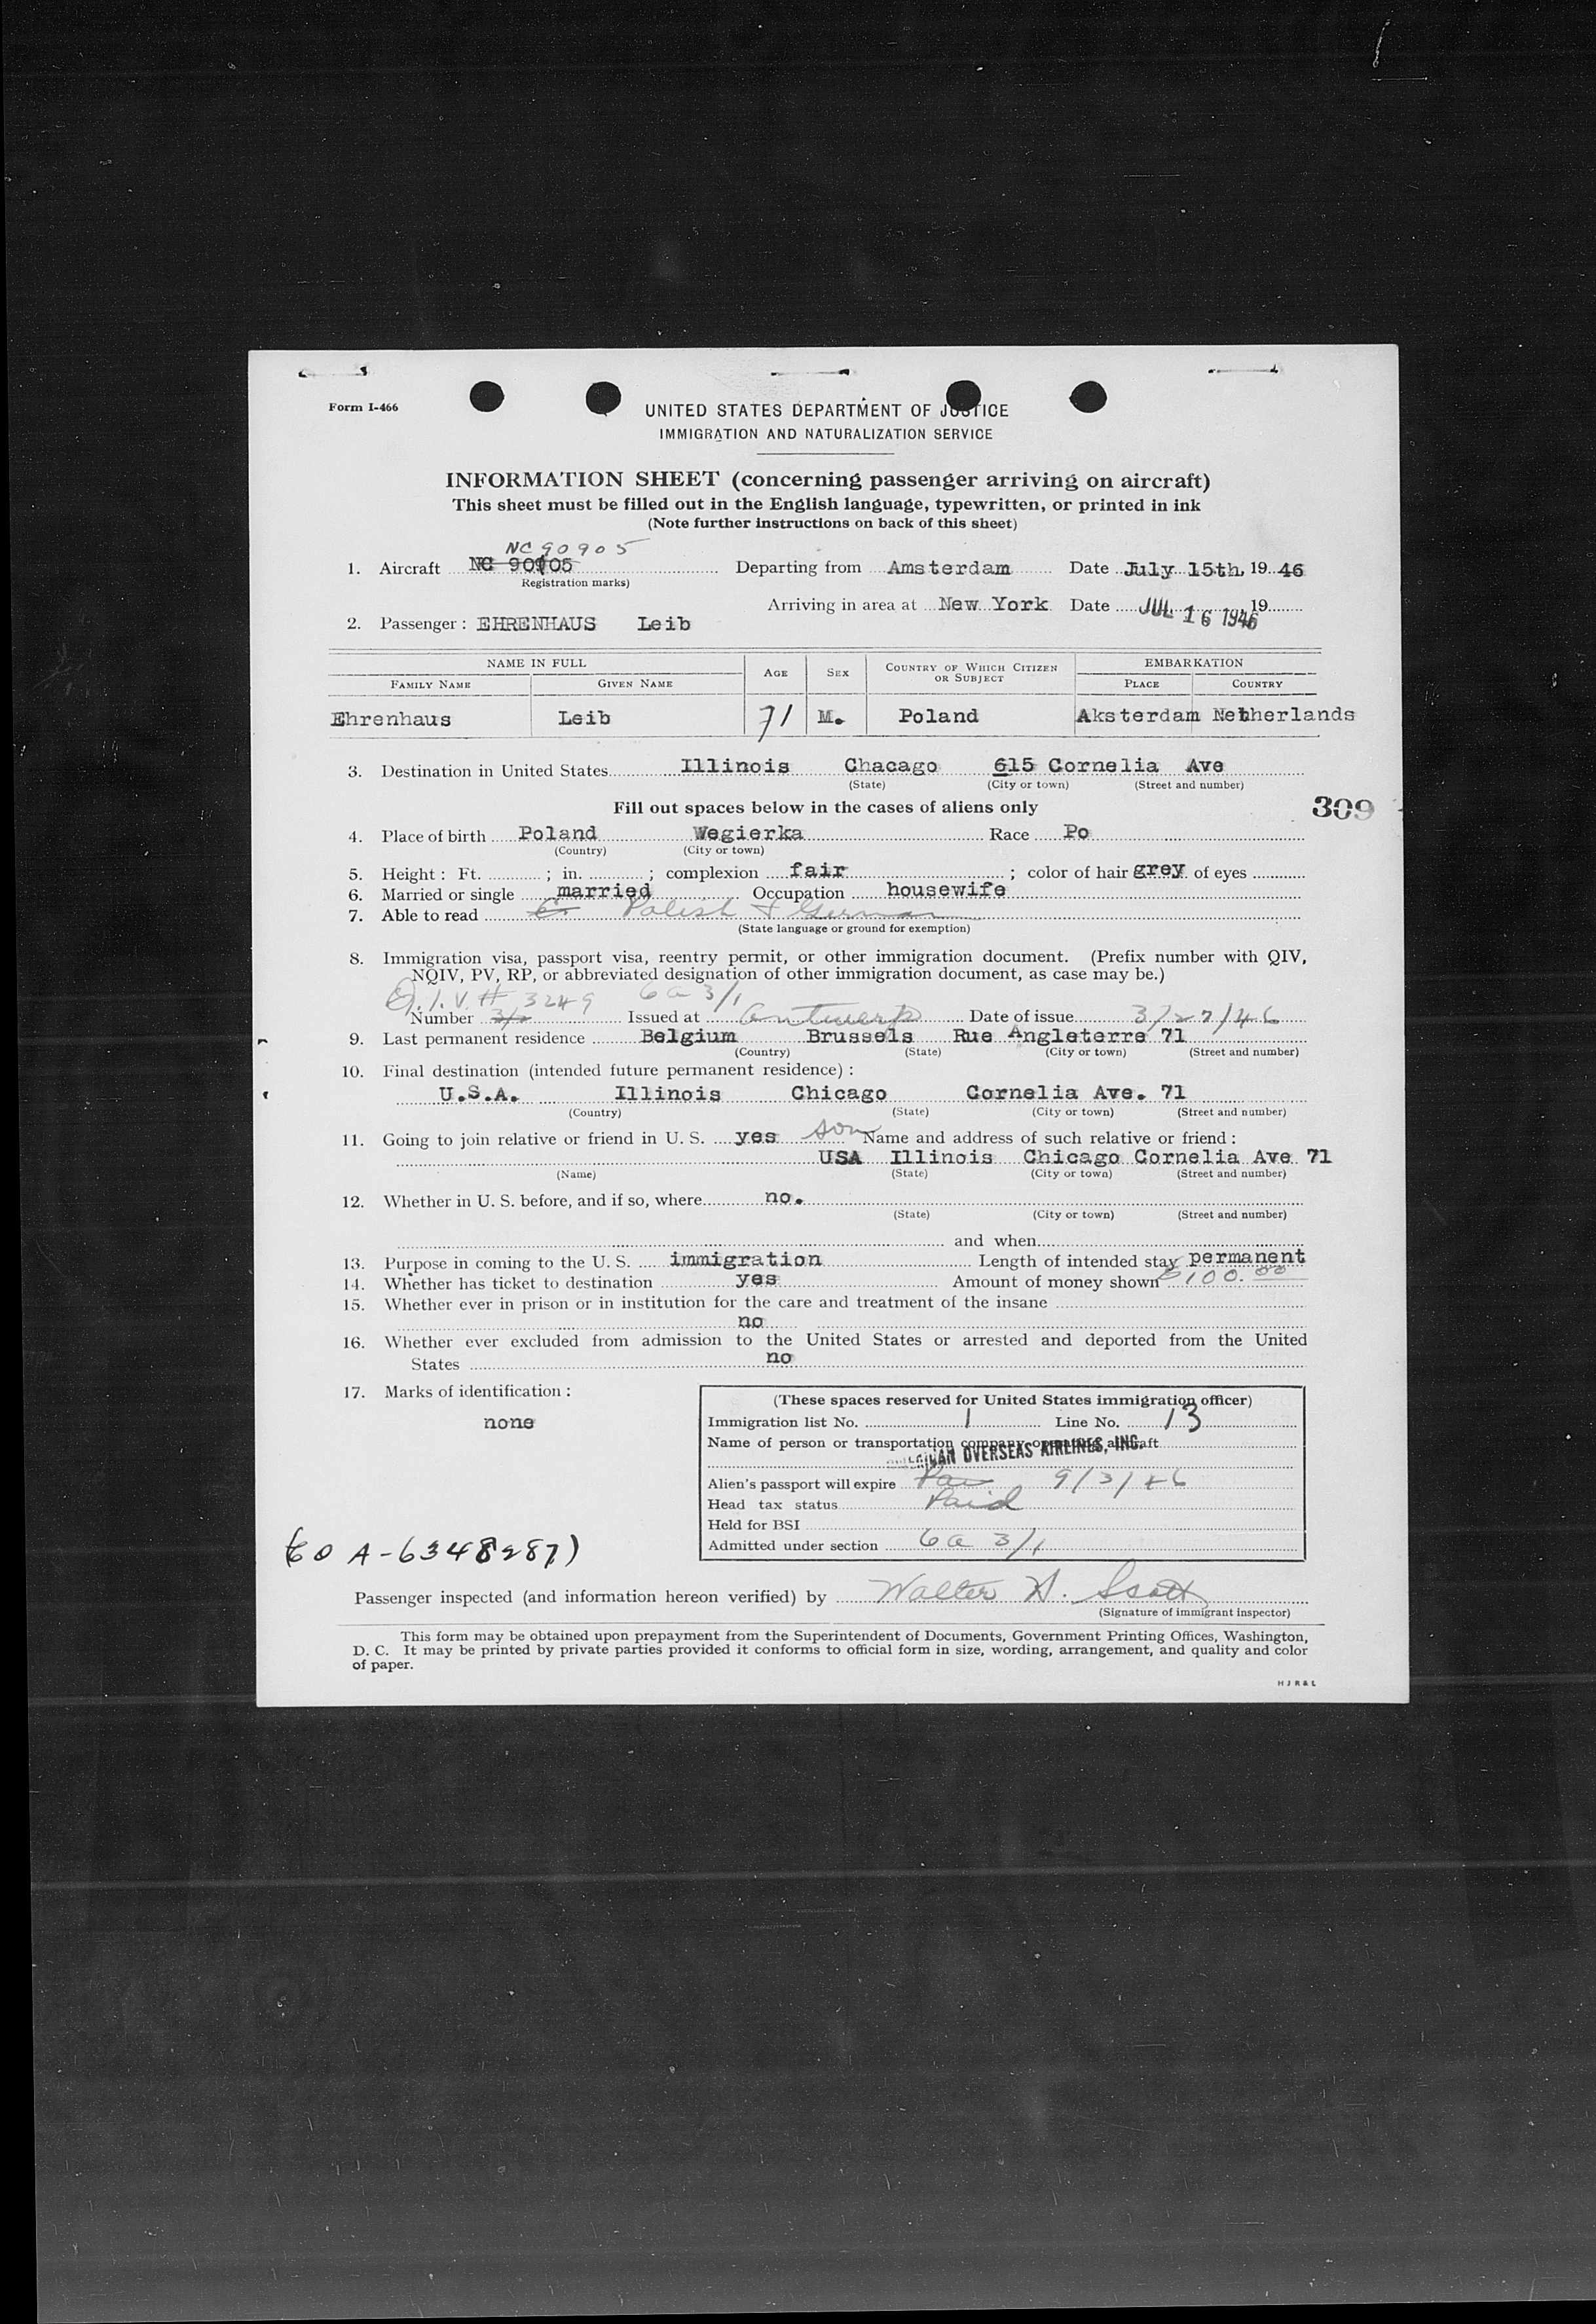 Form I-466
UNITED STATES DEPARTMENT OF JUSTICE
IMMIGRATION AND NATURALIZATION SERVICE
INFORMATION SHEET (concerning passenger arriving on aircraft)
This sheet must be filled out in the English language, typewritten, or printed in ink
(Note further instructions on back of this sheet)
NC 90905
1. Aircraft NC 90105 Departing from Amsterdam Date July 15th, 19 46
Registration marks)
Arriving in area at New York Date JUL 16 1946 19
2. Passenger : EHRENHAUS Leib
NAME IN FULL AGE SEX COUNTRY OF WHICH CITIZEN OR SUBJECT EMBARKATION
FAMILY NAME GIVEN NAME PLACE COUNTRY
Ehrenhaus Leib 71 M. Poland Aksterdam Netherlands
3. Destination in United States Illinois Chacago 615 Cornelia Ave
(State) (City or town) (Street and number)
Fill out spaces below in the cases of aliens only 309
4. Place of birth Poland Wegierka Race Po
(Country) (City or town)
5. Height : Ft. ; in. ; complexion fair ; color of hair grey of eyes
6. Married or single married Occupation housewife
7. Able to read Polish & German
(State language or ground for exemption)
8. Immigration visa, passport visa, reentry permit, or other immigration document. (Prefix number with QIV,
NQIV, PV, RP, or abbreviated designation of other immigration document, as case may be.)
Q.I.V. # 3249 6a 3/1
Number Issued at Antwerp Date of issue 3/27/46
9. Last permanent residence Belgium Brussels Rue Angleterre 71
(Country) (State) (City or town) (Street and number)
10. Final destination (intended future permanent residence) :
U.S.A. Illinois Chicago Cornelia Ave. 71
(Country) (State) (City or town) (Street and number)
11. Going to join relative or friend in U. S. yes son Name and address of such relative or friend :
USA Illinois Chicago Cornelia Ave 71
(Name) (State) (City or town) (Street and number)
12. Whether in U. S. before, and if so, where no.
(State) (City or town) (Street and number)
and when
13. Purpose in coming to the U. S. immigration Length of intended stay permanent
14. Whether has ticket to destination yes Amount of money shown $100.00
15. Whether ever in prison or in institution for the care and treatment of the insane
no
16. Whether ever excluded from admission to the United States or arrested and deported from the United
States no
17. Marks of identification :
none
(These spaces reserved for United States immigration officer)
Immigration list No. 1 Line No. 13
Name of person or transportation company operating aircraft
AMERICAN OVERSEAS AIRLINES, INC.
Alien's passport will expire 9/3/46
Head tax status Paid
Held for BSI
Admitted under section 6a 3/1
(CO A-6348287)
Passenger inspected (and information hereon verified) by Walter H. Scott
(Signature of immigrant inspector)
This form may be obtained upon prepayment from the Superintendent of Documents, Government Printing Offices, Washington,
D. C. It may be printed by private parties provided it conforms to official form in size, wording, arrangement, and quality and color
of paper.
H J R & L